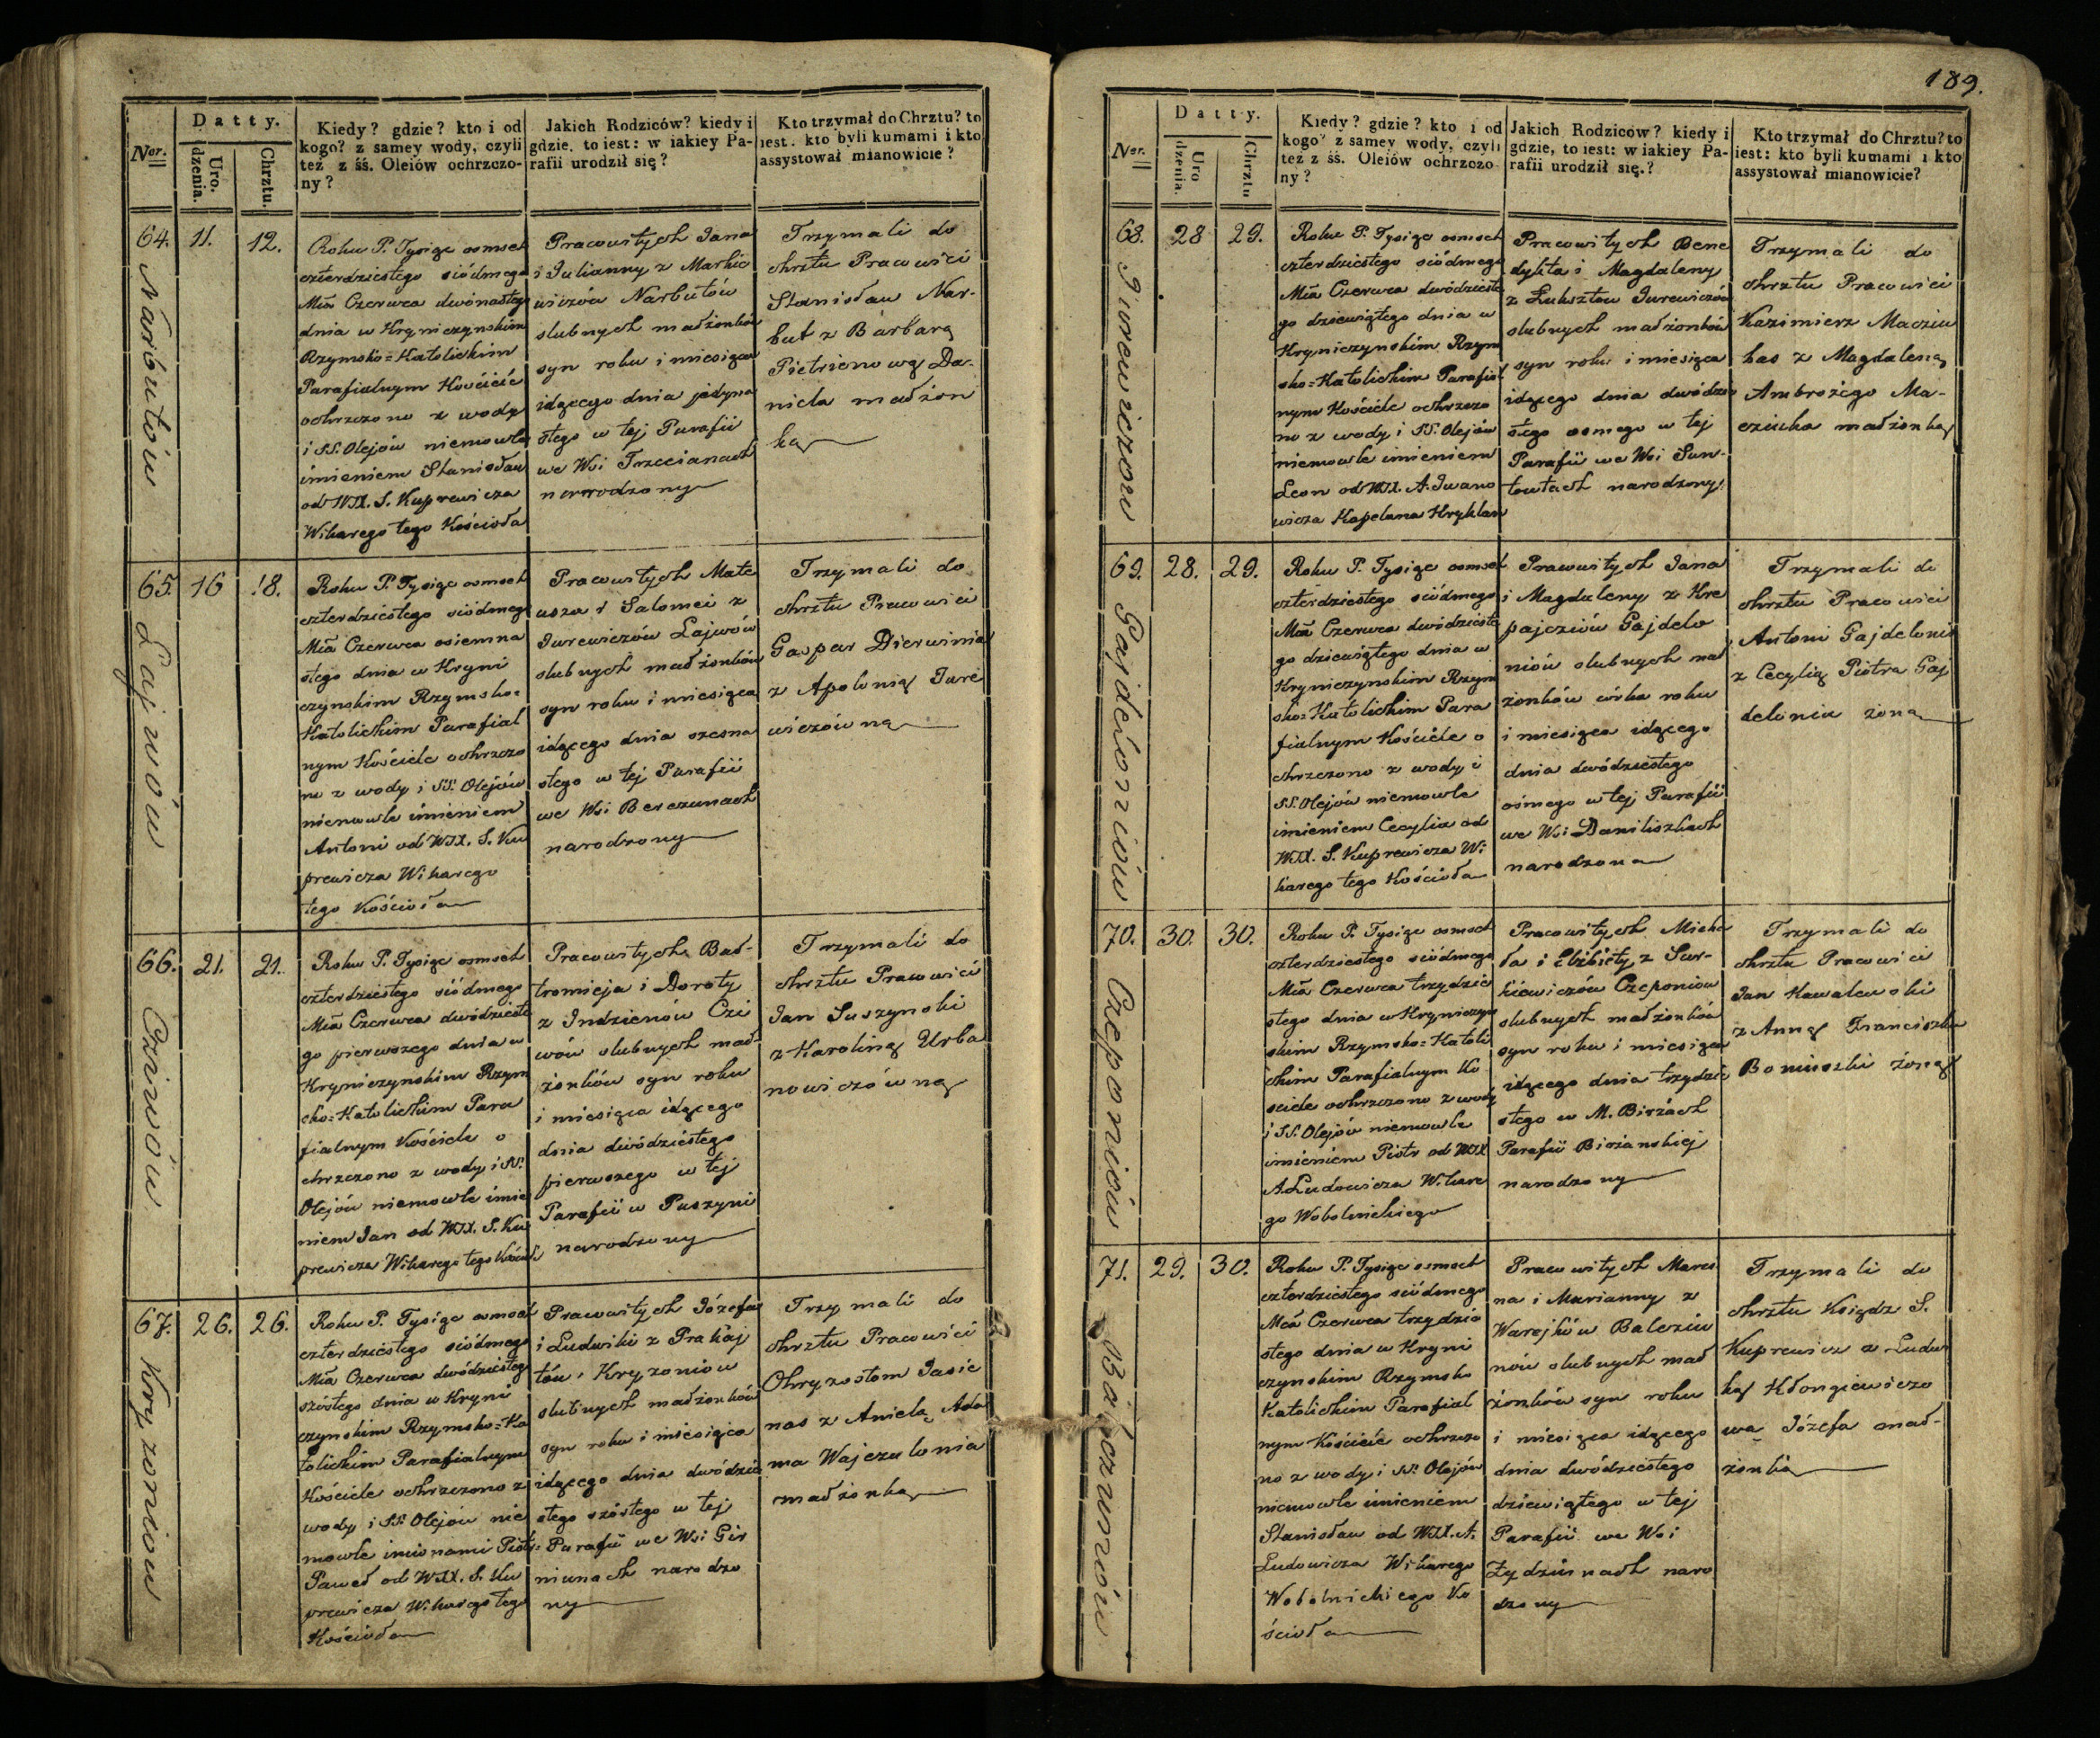 Nor.
Datty.
Uro.
dzenia.
Chrztu.
Kiedy? gdzie? kto i od
kogo? z samey wody, czyli
też z śś. Oleiów ochrzczo-
ny?
Jakich Rodziców? kiedy i
gdzie, to iest: w iakiey Pa-
rafii urodził się?
Kto trzymał do Chrztu? to
iest: kto byli kumami i kto
assystował mianowicie?
64.
11.
12.
Narbutów
Roku P. Tysiąc osmset
czterdziestego siódmego
Mca Czerwca dwónastego
dnia w Kryniczynskim
Rzymsko=Katolickim
Parafialnym Kościele
ochrzczono z wody
i SS. Olejów niemowle
imieniem Stanisław
od WJX. S. Kuprewicza
Wikarego tego Kościoła
Pracowitych Jana
i Julianny z Markie
wiczów Narbutów
slubnych małżonków
syn roku i miesiąca
idącego dnia jedyna
stego w tej Parafii
we Wsi Trzecianach
narodzony
Trzymali do
chrztu Pracowici
Stanisław Nar-
but z Barbarą
Pietrienową Da-
niela małżon
ką
65.
16
18.
Łajwów
Roku P. Tysiąc osmset
czterdziestego siódmego
Mca Czerwca osiemna
stego dnia w Kryni
czynskim Rzymsko=
Katolickim Parafial
nym Kościele ochrzczo
no z wody i SS. Olejów
niemowle imieniem
Antoni od WJX. S. Ku
prewicza Wikarego
tego Kościoła
Pracowitych Mate
usza i Salomei z
Jurewiczów Łajwów
slubnych małżonków
syn roku i miesiąca
idącego dnia szesna
stego w tej Parafii
we Wsi Berczunach
narodzony
Trzymali do
chrztu Pracowici
Gaspar Dierwinia
z Apolonią Jure
wiczówną
66.
21.
21.
Cziwów
Roku P. Tysiąc osmset
czterdziestego siódmego
Mca Czerwca dwódzieste
go pierwszego dnia w
Kryniczynskim Rzym
sko=Katolickim Para
fialnym Kościele o
chrzczono z wody i SS.
Olejów niemowle imie
niem Jan od WJX. S. Ku
prewicza Wikarego tego Kościoła
Pracowitych Bał-
tromieja i Doroty
z Indzienów Czi
wów slubnych mał-
żonków syn roku
i miesiąca idącego
dnia dwódziestego
pierwszego w tej
Parafii w Puszyni
narodzony
Trzymali do
chrztu Pracowici
Jan Suszynski
z Karoliną Urba
nowiczówną
67.
26.
26.
Kryzoniow
Roku P. Tysiąc osmset
czterdziestego siódmego
Mca Czerwca dwódziestego
szóstego dnia w Kryni
czynskim Rzymsko=Ka
tolickim Parafialnym
Kościele ochrzczono z
wody i SS. Olejów nie
mowle imionami Piotr=
Paweł od WJX. S. Ku
prewicza Wikarego tego
Kościoła
Pracowitych Józefa
i Ludwiki z Prakaj
tów Kryzoniow
slubnych małżonków
syn roku i miesiąca
idącego dnia dwódzie
stego szóstego w tej
Parafii we Wsi Gir
niunach narodzo
ny
Trzymali do
chrztu Pracowici
Chryzostom Jasie
nas z Anielą Ada
ma Wajczulonia
małżonką
189.
Nor.
Datty.
Uro
dzenia.
Chrztu
Kiedy? gdzie? kto i od
kogo? z samey wody, czyli
też z śś. Oleiów ochrzczo-
ny?
Jakich Rodziców? kiedy i
gdzie, to iest: w iakiey Pa-
rafii urodził się.?
Kto trzymał do Chrztu? to
iest: kto byli kumami i kto
assystował mianowicie?
68.
28
29.
Jurewiczow
Roku P. Tysiąc osmset
czterdziestego siódmego
Mca Czerwca dwódzieste
go dziewiątego dnia w
Krynieczynskim Rzym
sko=Katolickim Parafial
nym Kościele ochrzczo
no z wody i SS. Olejów
niemowle imieniem
Leon od WJX. A. Jwano
wicza Kapelana Kryklan
Pracowitych Bene
dykta i Magdaleny
z Łuksztow Jurewiczów
slubnych małżonków
syn roku i miesiąca
idącego dnia dwódzie
stego osmego w tej
Parafii we Wsi Sun-
towtach narodzony
Trzymali do
chrztu Pracowici
Kazimierz Macziu
kas z Magdaleną
Ambrożego Ma-
cziuka małżonką
69.
28.
29.
Gajdeloniów
Roku P. Tysiąc osmset
czterdziestego siódmego
Mca Czerwca dwódzieste
go dziewiątego dnia w
Krynieczynskim Rzym
sko=Katolickim Para
fialnym Kościele o
chrzczono z wody i
SS. Olejów niemowle
imieniem Cecylia od
WJX. S. Kuprewicza Wi
karego tego Kościoła
Pracowitych Jana
i Magdaleny z Kre
pajcziów Gajdelo
niów slubnych mał
żonków córka roku
i miesiąca idącego
dnia dwódziestego
ośmego w tej Parafii
we Wsi Daniliszkach
narodzona
Trzymali do
chrztu Pracowici
Antoni Gajdelonis
z Cecylią Piotra Gaj
delonia żoną
70.
30.
30.
Czeponiów
Roku P. Tysiąc osmset
czterdziestego siódmego
Mca Czerwca trzydzie
stego dnia w Krynieczyn
skim Rzymsko=Katoli
ckim Parafialnym Ko
sciele ochrzczono z wody
i SS. Olejów niemowle
imieniem Piotr od WJX
A. Ludowicza Wikare
go Wobolnickiego
Pracowitych Micha
ła i Elżbiety z Sur-
kiewiczów Czeponiow
slubnych małżonków
syn roku i miesiąca
idącego dnia trzydzie
stego w M. Birżach
Parafii Birżanskiej
narodzony
Trzymali do
chrztu Pracowici
Jan Kawalewski
z Anną Franciszka
Bominski żoną
71.
29.
30.
Balcziunów
Roku P. Tysiąc osmset
czterdziestego siódmego
Mca Czerwca trzydzie
stego dnia w Kryni
czynskim Rzymsko
Katolickim Parafial
nym Kościele ochrzczo
no z wody i SS. Olejów
niemowle imieniem
Stanisław od WJX. A.
Ludowicza Wikarego
Wobolnickiego Ko
ścioła
Pracowitych Marci
na i Marianny z
Warejków Balcziu
nów slubnych mał
żonków syn roku
i miesiąca idącego
dnia dwódziestego
dziewiątego w tej
Parafii we Wsi
Żydziunach naro
dzony
Trzymali do
chrztu Ksiądz S.
Kuprewicz z Ludwi
ką Kłongiewiczo
wą Józefa mał-
żonką